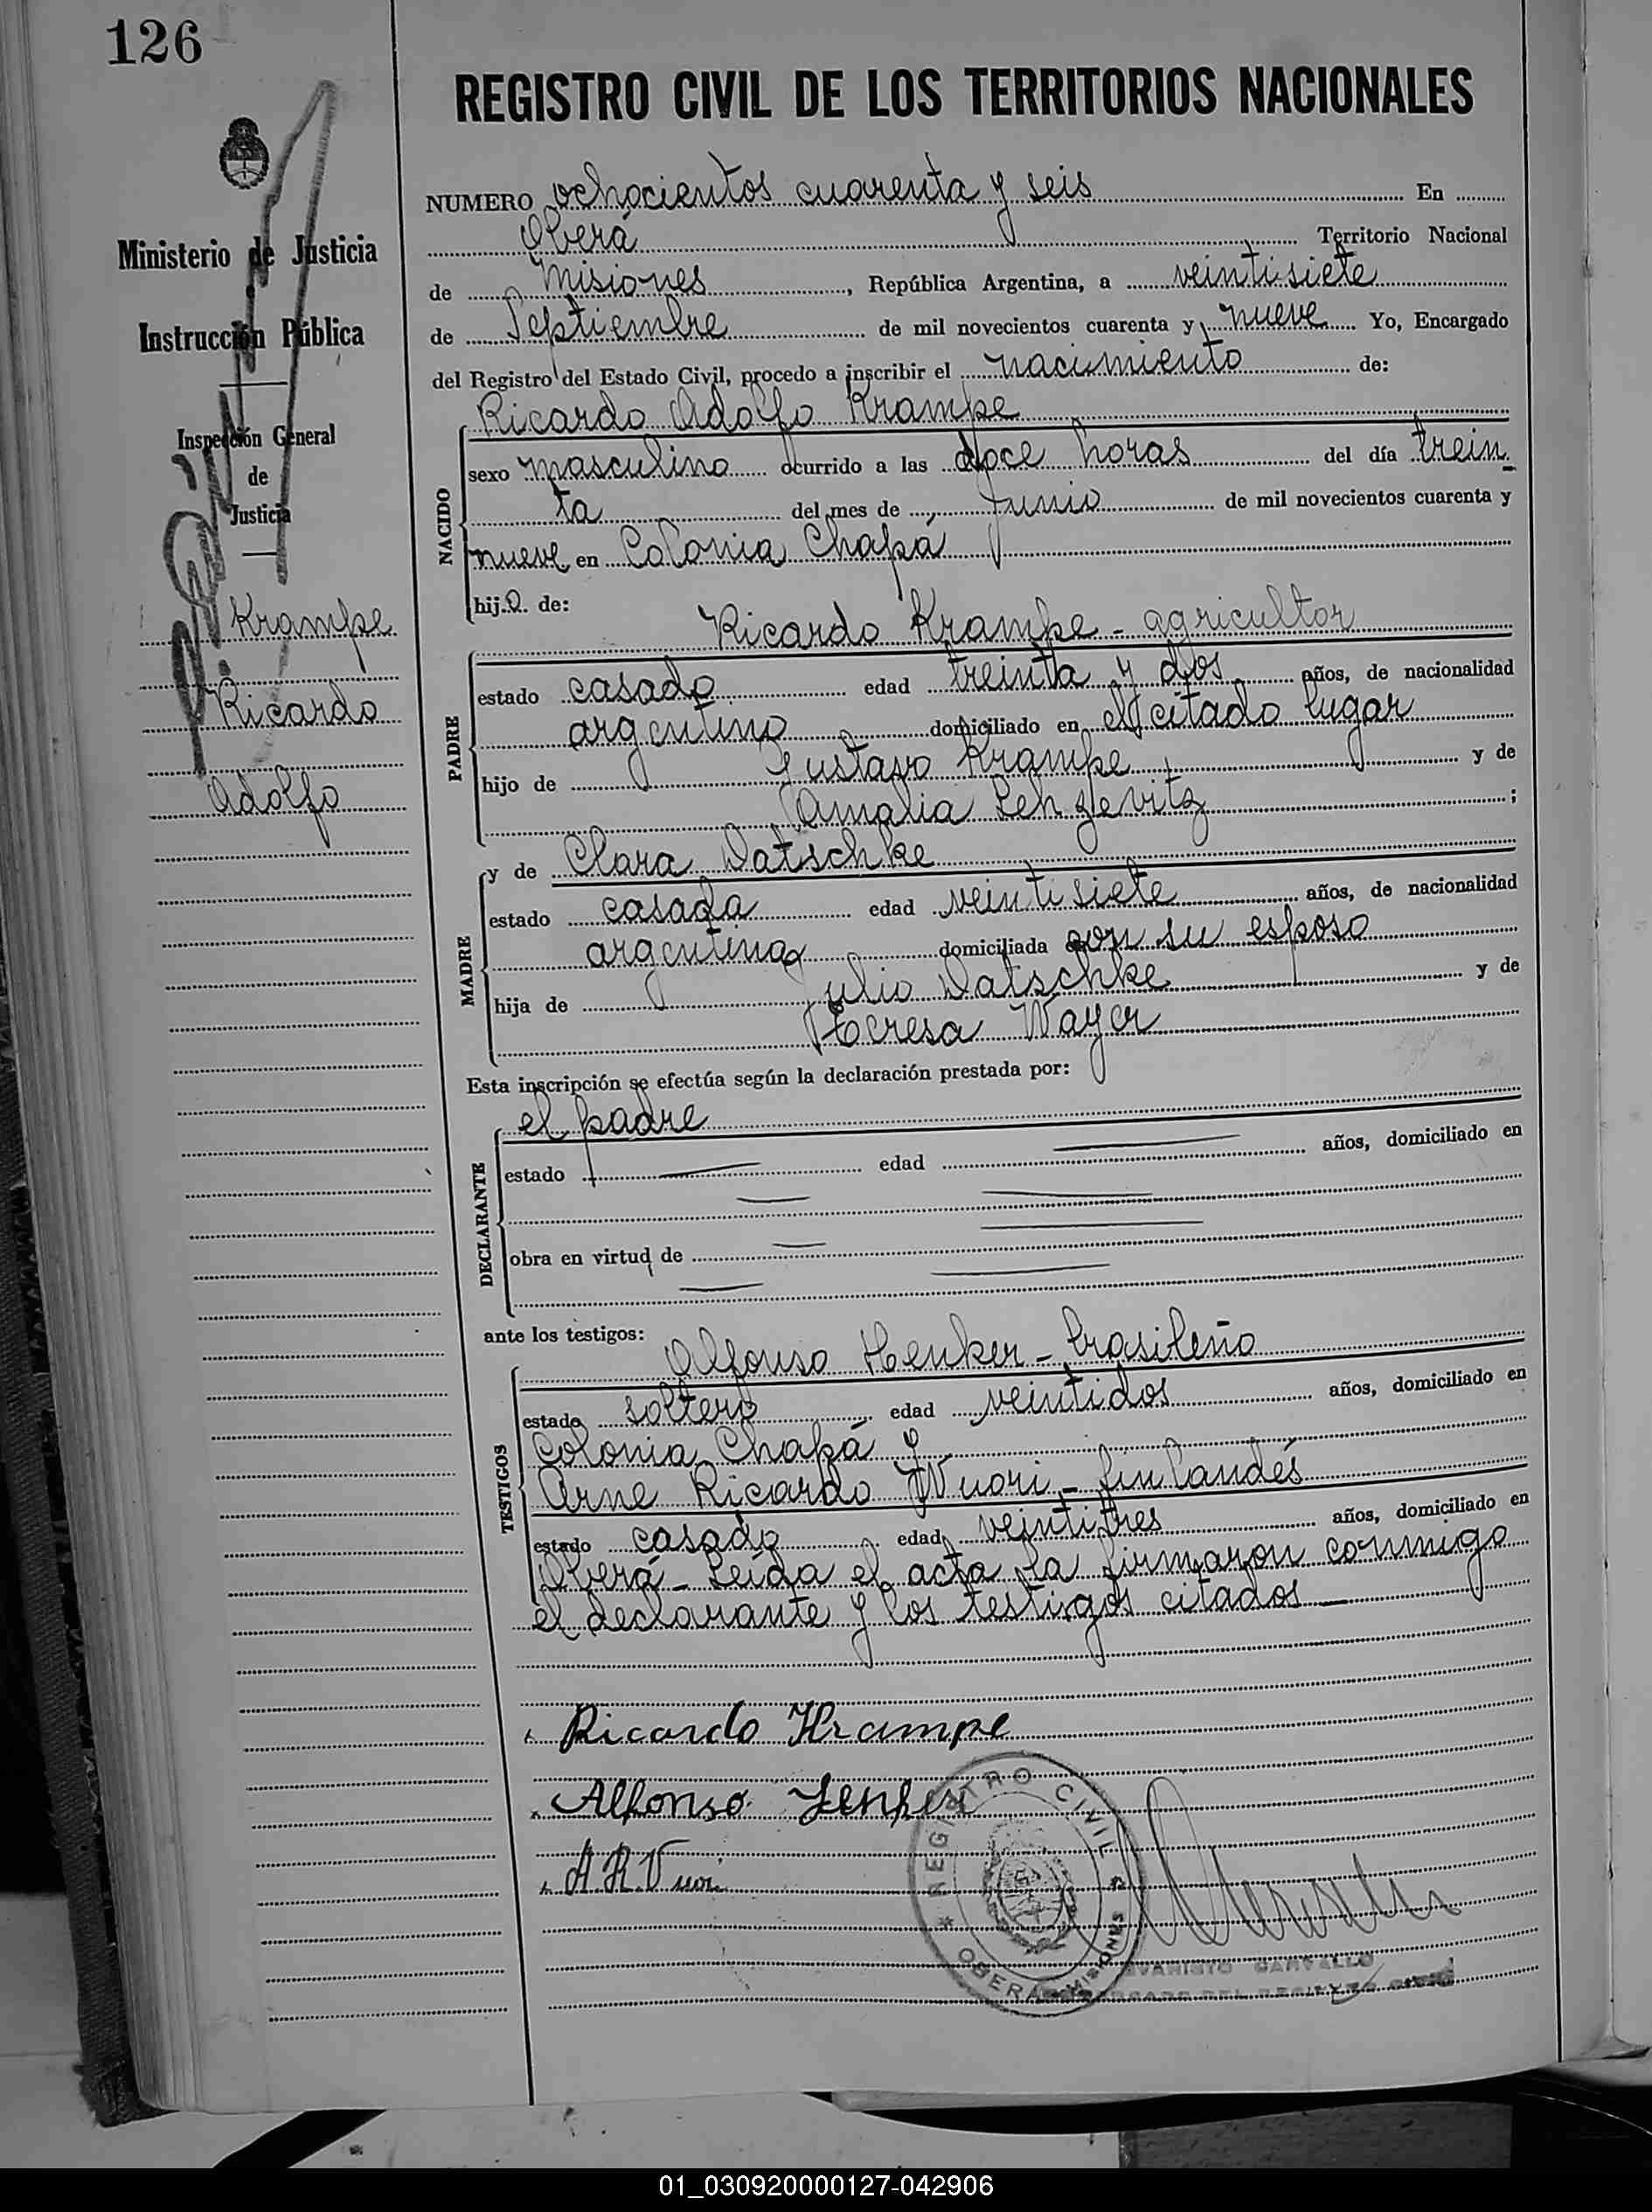 126
REGISTRO CIVIL DE LOS TERRITORIOS NACIONALES
Ministerio de Justicia
Instrucción Pública
Inspección General
de
Justicia
Krampe
Ricardo
Adolfo
NUMERO ochocientos cuarenta y seis En
Oberá Territorio Nacional
de Misiones, República Argentina, a veintisiete
de Septiembre de mil novecientos cuarenta y nueve Yo, Encargado
del Registro del Estado Civil, procedo a inscribir el nacimiento de:
Ricardo Adolfo Krampe
NACIDO
sexo masculino ocurrido a las doce horas del día trein-
ta del mes de Junio de mil novecientos cuarenta y
nueve en Colonia Chapá
hijo de:
Ricardo Krampe - agricultor
PADRE
estado casado edad treinta y dos años, de nacionalidad
argentino domiciliado en el citado lugar
hijo de Gustavo Krampe y de
Amalia ;
y de Clara Datschke
MADRE
estado casada edad veintisiete años, de nacionalidad
argentina domiciliada con su esposo
hija de Julio Datschke y de
Teresa Wayer
Esta inscripción se efectúa según la declaración prestada por:
el padre
DECLARANTE
estado edad años, domiciliado en
obra en virtud de
ante los testigos:
Alfonso Henker - brasileño
TESTIGOS
estado soltero edad veintidos años, domiciliado en
Colonia Chapá y
Arne Ricardo Wuori - finlandés
estado casado edad veintitres años, domiciliado en
Oberá - Leída el acta la firmaron conmigo
el declarante y los testigos citados
Ricardo Krampe
Alfonso
A. R. Vuori
REGISTRO CIVIL
OBERA MISIONES
01_030920000127-042906